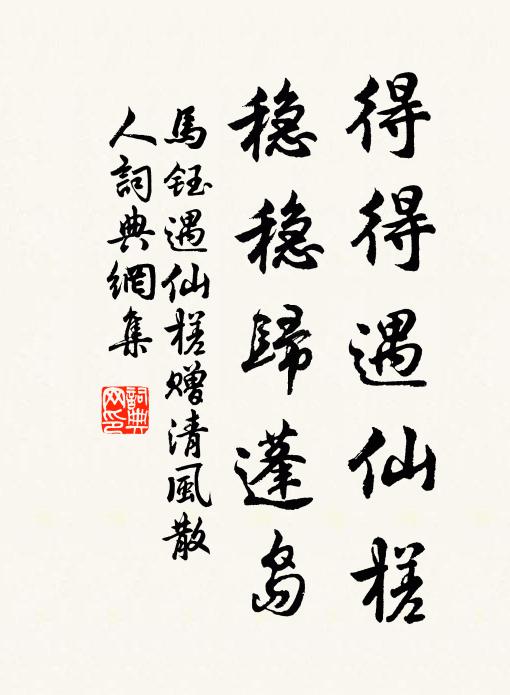 得得遇仙槎
稳稳歸蓬島
馬鈺遇仙槎贈清風散
人詞典網集
詞典网印